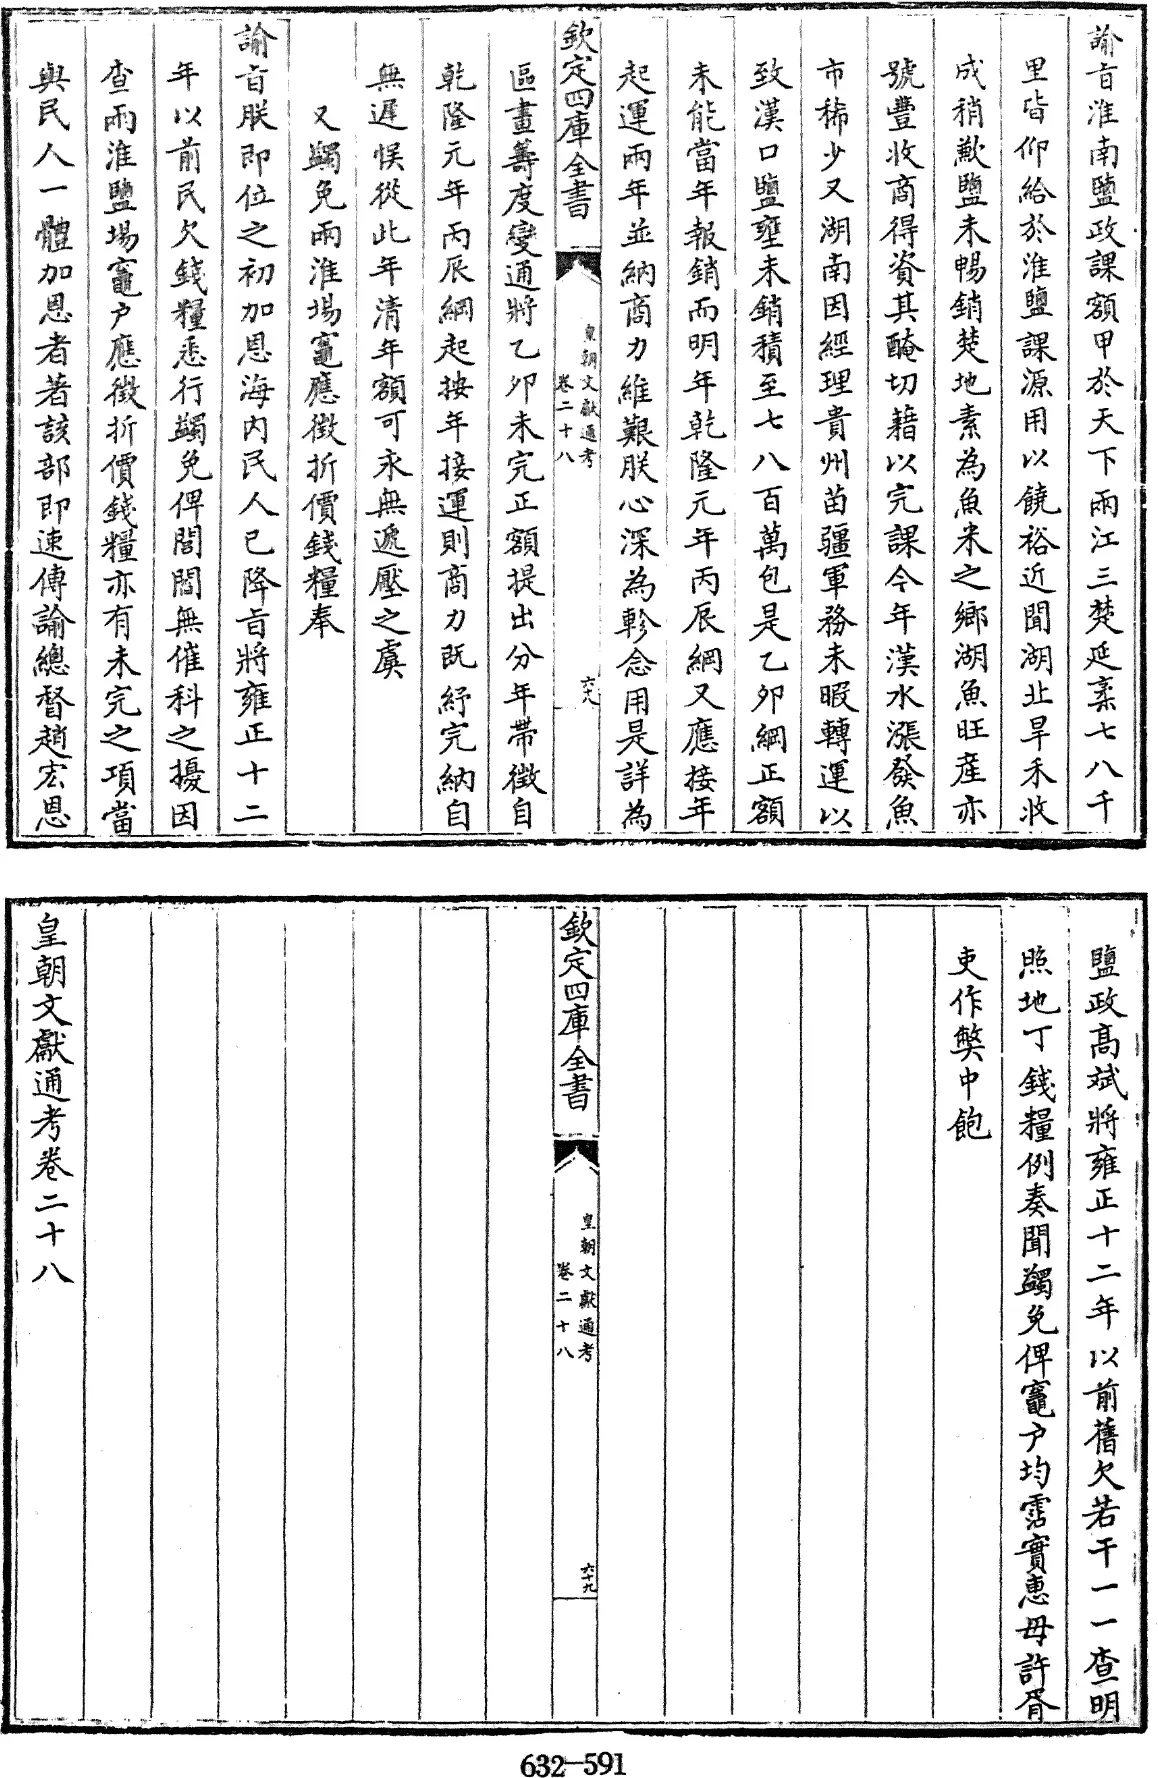 諭旨淮南鹽政課額甲於天下兩江三楚延袤七八千
里皆仰給於淮鹽課源用以饒裕近聞湖北旱禾收
成稍歉鹽未暢銷楚地素為魚米之鄉湖魚旺産亦
號豐收商得資其醃切藉以完課今年漢水漲發魚
市稀少又湖南因經理貴州苗疆軍務未暇轉運以
致漢口鹽壅未銷積至七八百萬包是乙夘綱正額
未能當年報銷而明年乾隆元年丙辰綱又應接年
起運兩年並納商力維艱朕心深為軫念用是詳為
欽定四庫全書
皇朝文獻通考
卷二十八
六十八
區畫籌度變通將乙夘未完正額提出分年帶徵自
乾隆元年丙辰綱起按年接運則商力既紓完納自
無遲悮從此年清年額可永無遞壓之虞
又蠲免兩淮場竈應徵折價錢糧奉
諭旨朕即位之初加恩海内民人已降旨將雍正十二
年以前民欠錢糧悉行蠲免俾閭閻無催科之擾因
查兩淮鹽場竈户應徵折價錢糧亦有未完之項當
與民人一體加恩者著該部即速傳諭總督趙宏恩
鹽政髙斌將雍正十二年以前舊欠若干一一查明
照地丁錢糧例奏聞蠲免俾竈户均霑實惠毋許胥
吏作弊中飽
欽定四庫全書
皇朝文獻通考
卷二十八
六十九
皇朝文獻通考卷二十八
632-591